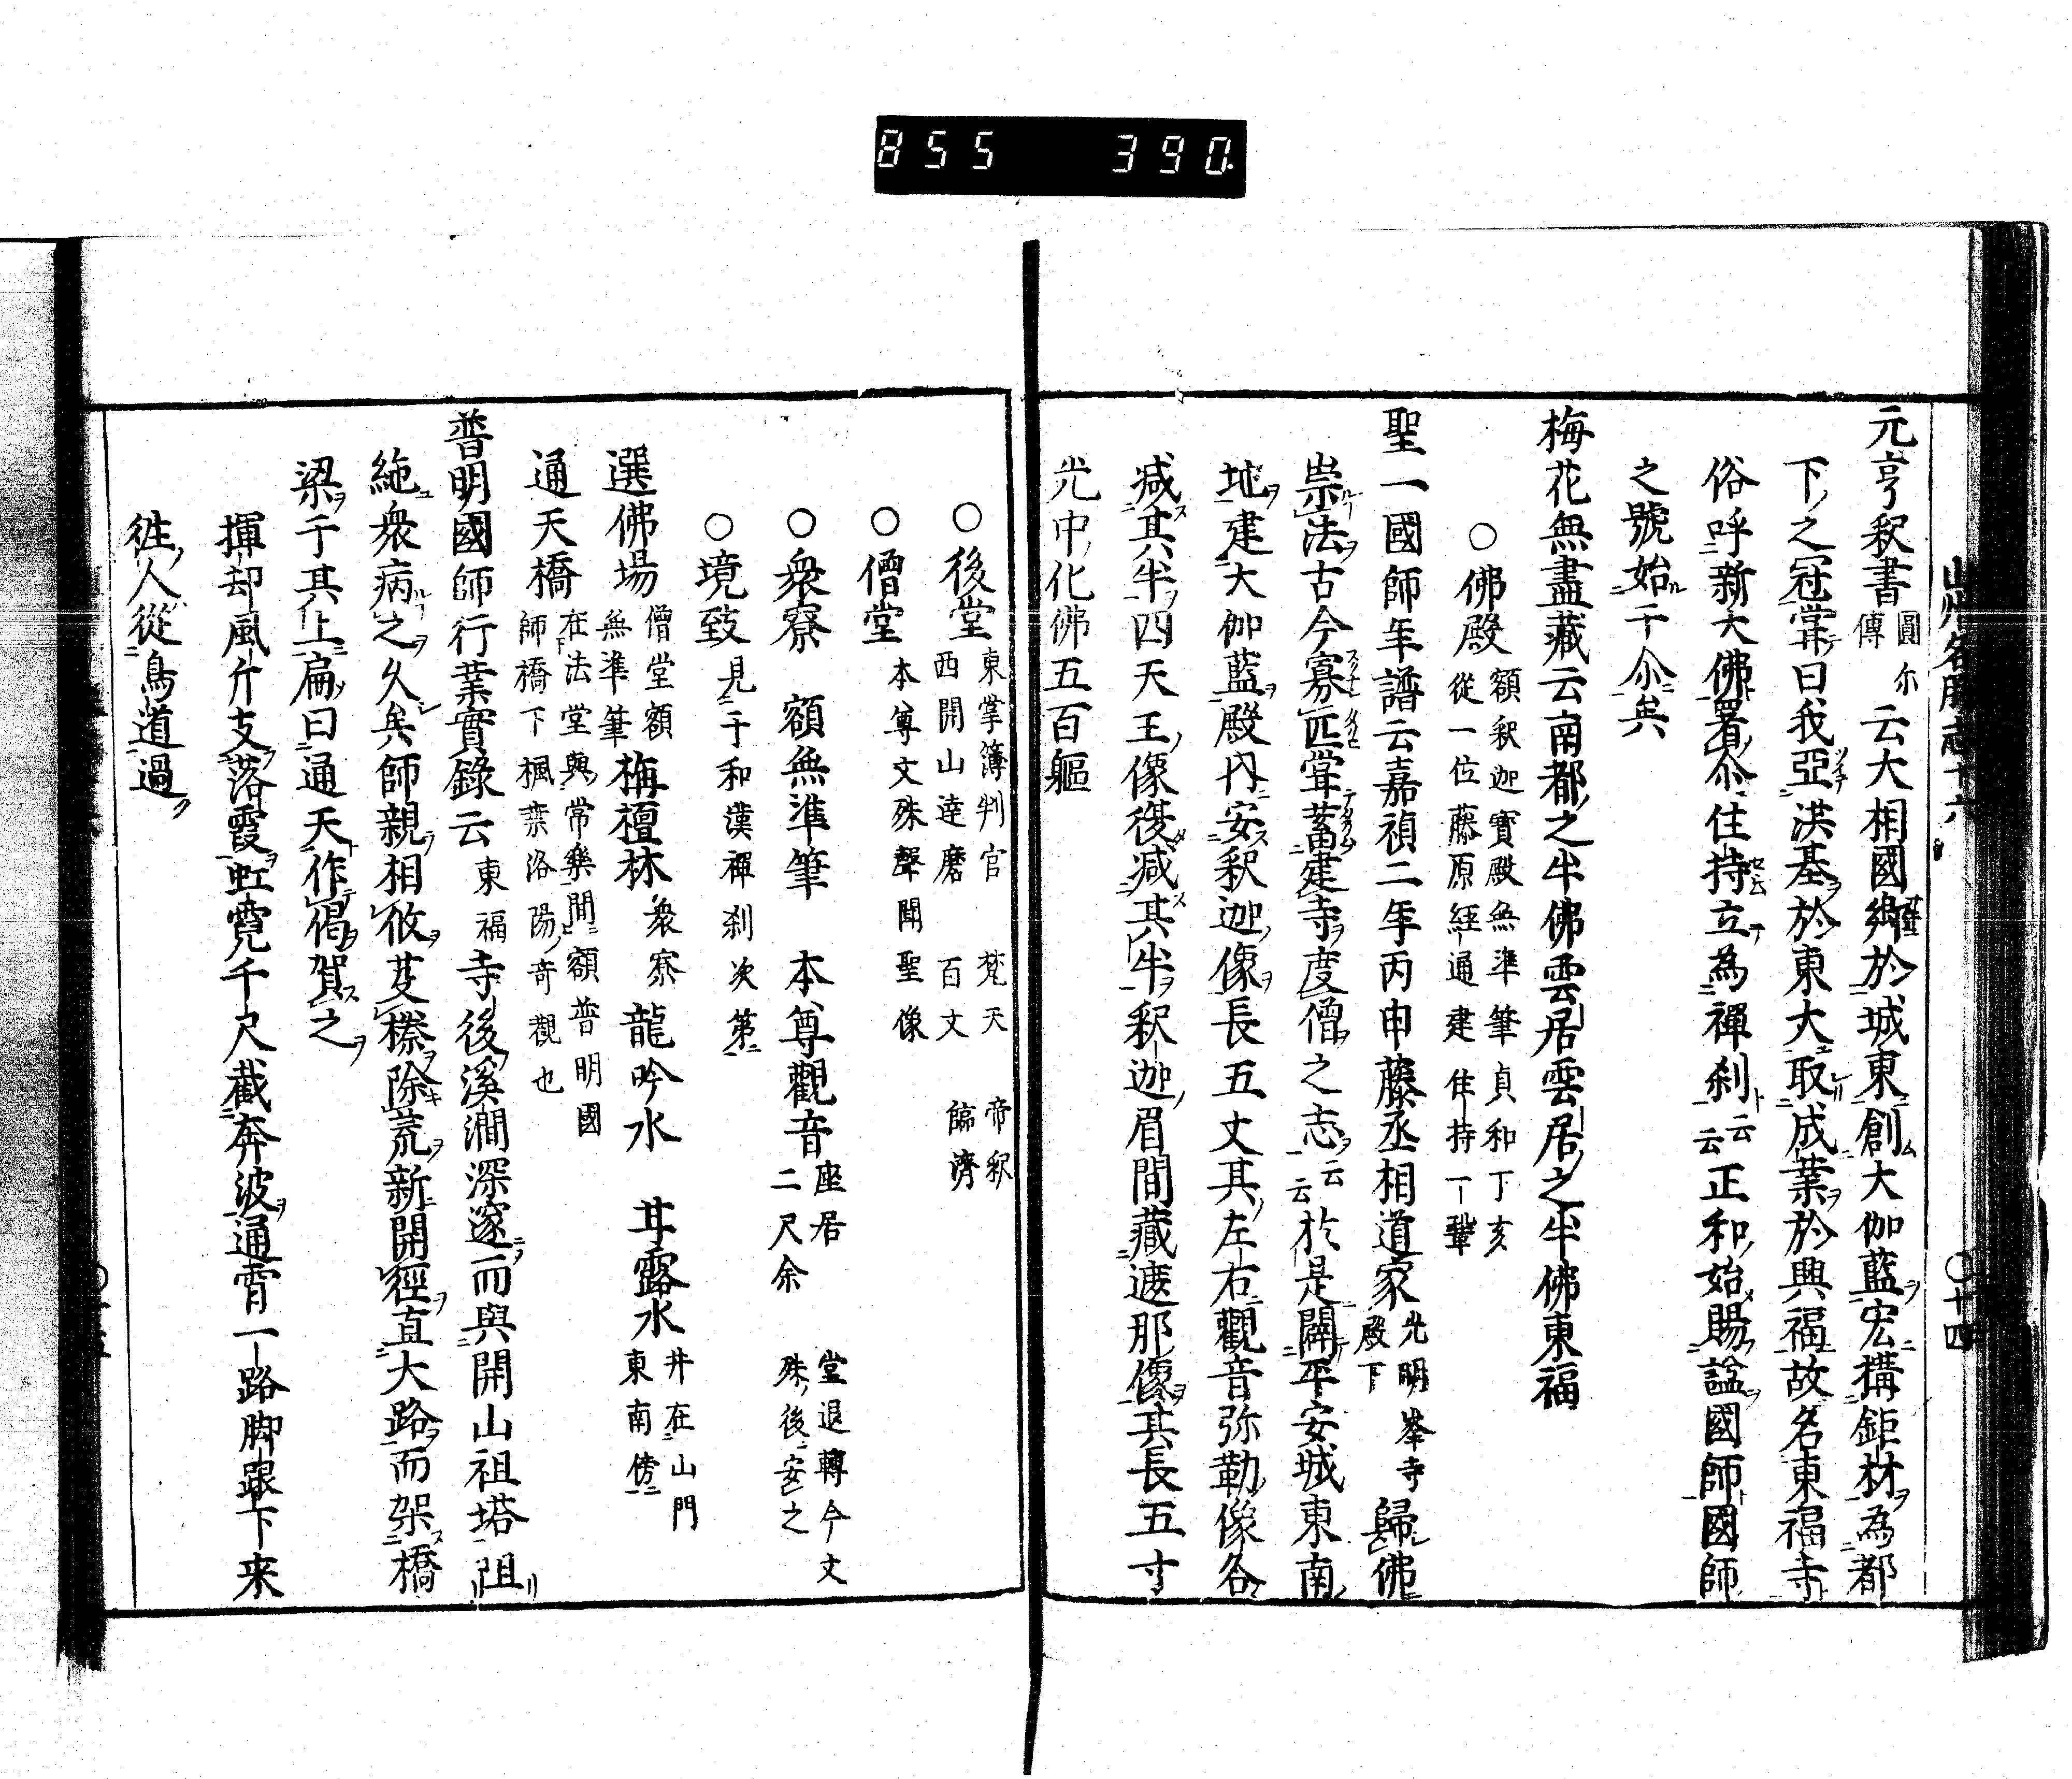 855 390
元亨釈書圓尓傳云大相國於城東創大伽藍宏構鉅材為都
下之冠甞曰我亞洪基於東大取成業於興福故名東福寺
俗呼新大佛署尒住持立為禪刹云云正和始賜諡國師國師
之號始于尒矣
梅花無盡藏云南都之半佛雲居雲居之半佛東福
○佛殿 額釈迦寶殿無準筆貞和丁亥
從一位藤原経通建住持一鞏
聖一國師年譜云嘉禎二年丙申藤丞相道家光明峯寺殿下歸佛
崇法古今寡匹甞蓄建寺度僧之志云云於是闢平安城東南
地建大伽藍殿内安釈迦像長五丈其左右觀音弥勒像各
減其半四天王像復減其半釈迦眉間藏遮那像其長五寸
光中化佛五百軀
山州名勝志十六 ○十四
○後堂 東掌簿判官 梵天 帝釈
西開山達磨 百丈 臨濟
○僧堂 本尊文殊聲聞聖像
○衆寮 額無準筆 本尊觀音 座居二尺余 堂退轉今文殊後安之
○境致 見于和漢禪刹次第
選佛場 僧堂額無準筆 栴檀林 衆寮 龍吟水 甘露水 井在山門東南傍
通天橋 在法堂與常樂間額普明國
師橋下楓葉洛陽奇觀也
普明國師行業實錄云東福寺後溪澗深邃而與開山祖塔阻
絶衆病之久矣師親相攸芟榛除荒新開徑直大路而架橋
梁于其上扁曰通天作偈賀之
揮却風斤支落霞虹霓千尺截奔波通霄一路脚跟下来
徃人從鳥道過